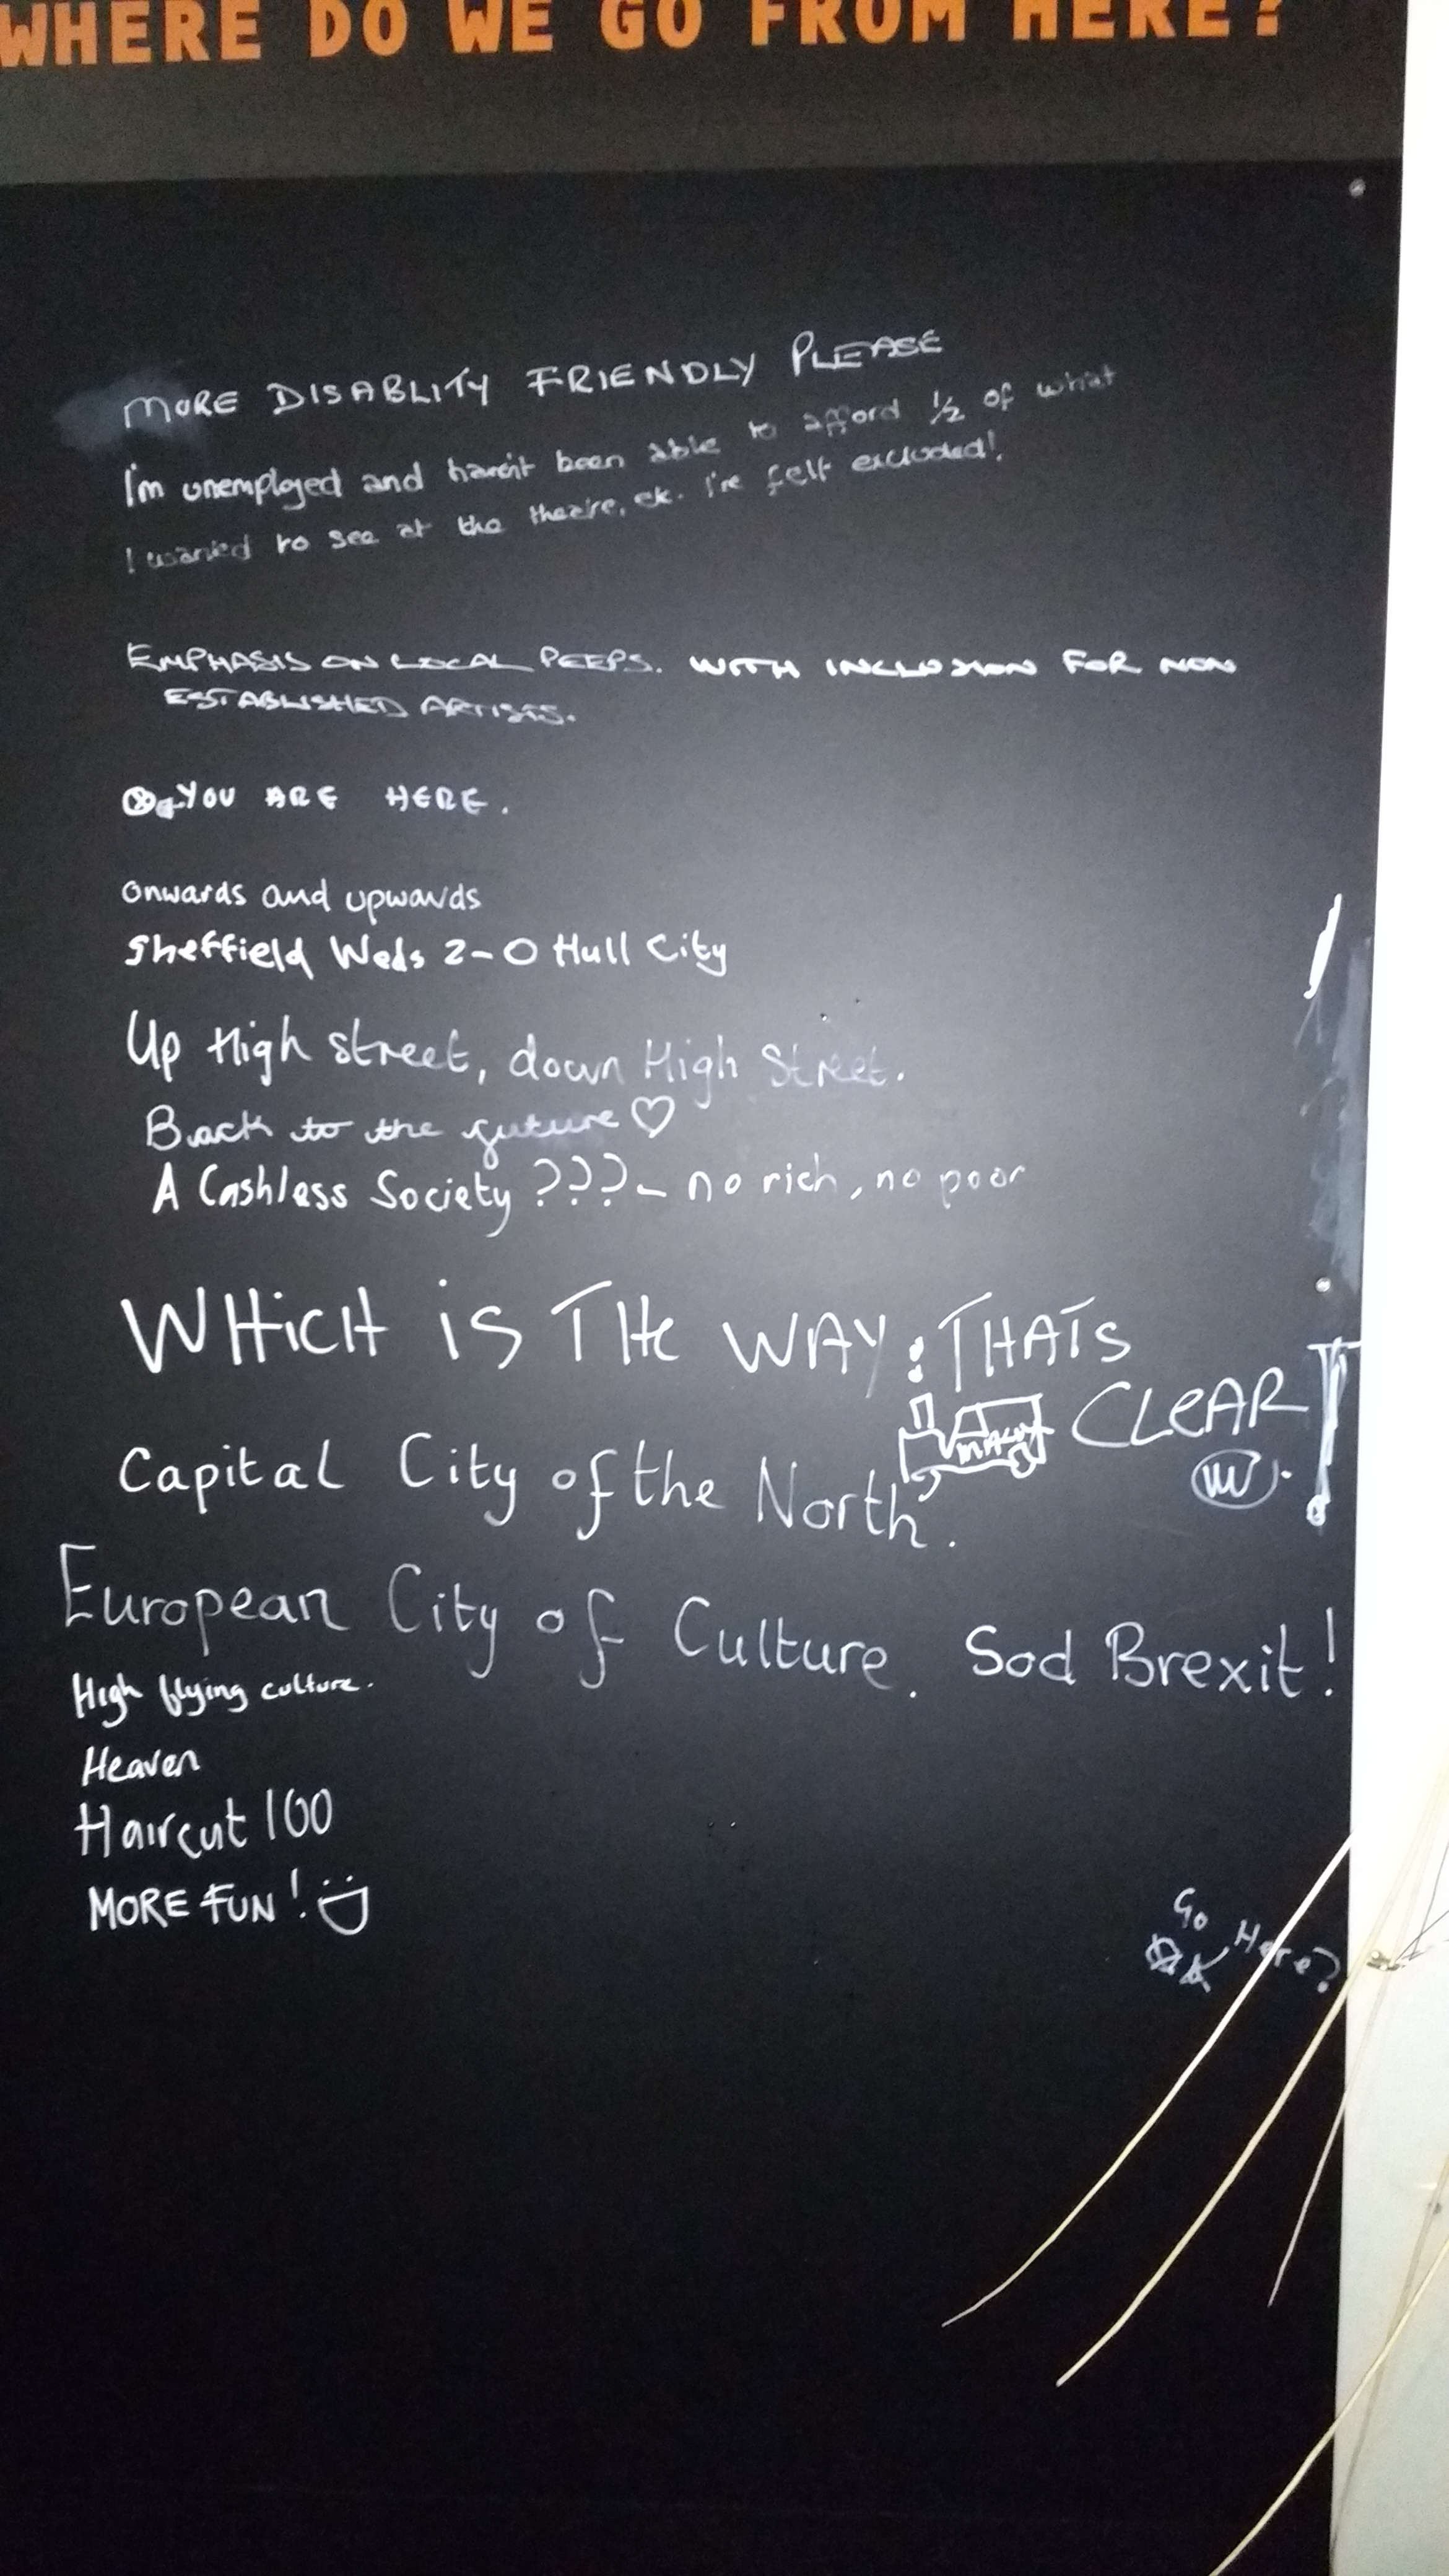 WHERE DO WE GO FROM HERE?
MORE DISABLITY FRIENDLY PLEASE
I'm unemployed and haven't been able to afford ½ of what
I wanted to see at the theatre, etc. I've felt excluded!
EMPHASIS ON LOCAL PEEPS. WITH INCLUSION FOR NON
ESTABLISHED ARTISTS.
YOU ARE HERE.
Onwards and upwards
Sheffield Weds 2-0 Hull City
Up High Street, down High Street.
Back to the future ♡
A Cashless Society ??? - no rich, no poor
WHICH IS THE WAY: THATS
CLEAR
Capital City of the North.
European City of Culture. Sod Brexit!
High flying culture.
Heaven
Haircut 100
MORE FUN!
Go
Here?